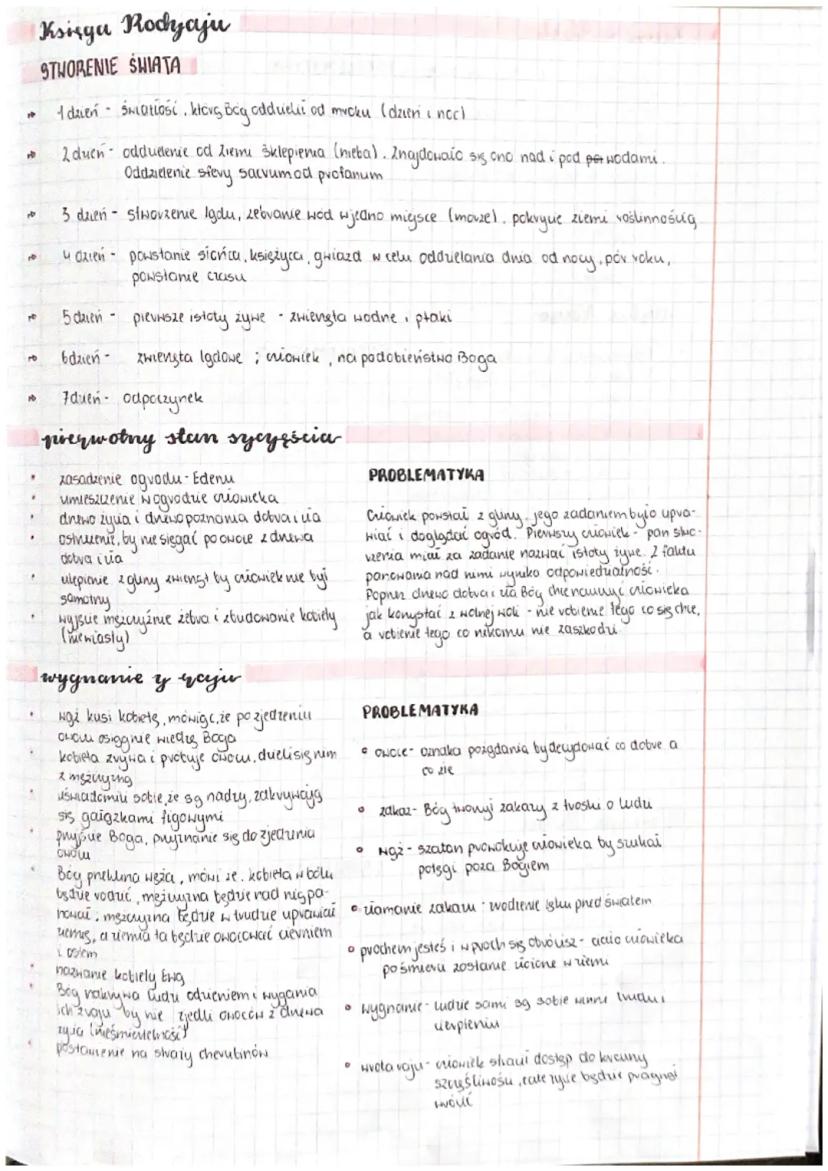 Księga Rodzaju
STWORZENIE ŚWIATA
1 dzień - światłość, którą Bóg oddzielił od mroku (dzień i noc)
2 dzień - oddzielenie od ziemi sklepienia (nieba). Znajdowało się ono nad i pod wodami.
Oddzielenie sfery sacrum od profanum
3 dzień - stworzenie lądu, zebranie wód w jedno miejsce (morze), pokrycie ziemi roślinnością
4 dzień - powstanie słońca, księżyca, gwiazd w celu oddzielania dnia od nocy, pór roku,
powstanie czasu
5 dzień - pierwsze istoty żywe - zwierzęta wodne i ptaki
6 dzień - zwierzęta lądowe ; człowiek, na podobieństwo Boga
7 dzień - odpoczynek
pierwotny stan szczęścia
zasadzenie ogrodu - Edenu
umieszczenie w ogrodzie człowieka
drzewo życia i drzewo poznania dobra i zła
ostrzeżenie, by nie sięgać po owoce z drzewa
dobra i zła
ulepienie z gliny zwierząt by człowiek nie był
samotny
wyjęcie mężczyźnie żebra i zbudowanie kobiety
(niewiasty)
PROBLEMATYKA
Człowiek powstał z gliny, jego zadaniem było upra-
wiać i doglądać ogród. Pierwszy człowiek - pan stwo-
rzenia miał za zadanie nazwać istoty żywe. Z faktu
panowania nad nimi wynika odpowiedzialność.
Poprzez drzewo dobra i zła Bóg chce nauczyć człowieka
jak korzystać z wolnej woli - nie robienie tego co się chce,
a robienie tego co nikomu nie zaszkodzi
wygnanie z raju
wąż kusi kobietę, mówiąc, że po zjedzeniu
owocu osiągnie wiedzę Boga
kobieta zrywa i próbuje owocu, dzieli się nim
z mężczyzną
uświadomili sobie, że są nadzy, zakrywają
się gałązkami figowymi
przyjście Boga, przyznanie się do zjedzenia
owocu
Bóg przeklina węża, mówi że: kobieta w bólu
będzie rodzić, mężczyzna będzie nad nią pa-
nował; mężczyzna będzie w trudzie uprawiał
ziemię, a ziemia ta będzie owocować cierniem
i ostem
nazwanie kobiety Ewą
Bóg okrywa ludzi odzieniem i wygania
ich z raju by nie zjedli owoców z drzewa
życia (nieśmiertelność)
postawienie na straży cherubinów
PROBLEMATYKA
owoce - oznaka pożądania by decydować co dobre a
co złe
zakaz - Bóg tworzy zakazy z troski o ludzi
wąż - szatan prowokuje człowieka by szukał
potęgi poza Bogiem
złamanie zakazu : wodzenie lęku przed światem
prochem jesteś i w proch się obrócisz - ciało człowieka
po śmierci zostanie złożone w ziemi
wygnanie - ludzie sami są sobie winni trudu i
cierpieniu
wrota raju - człowiek stracił dostęp do krainy
szczęśliwości, całe życie będzie pragnął
wrócić